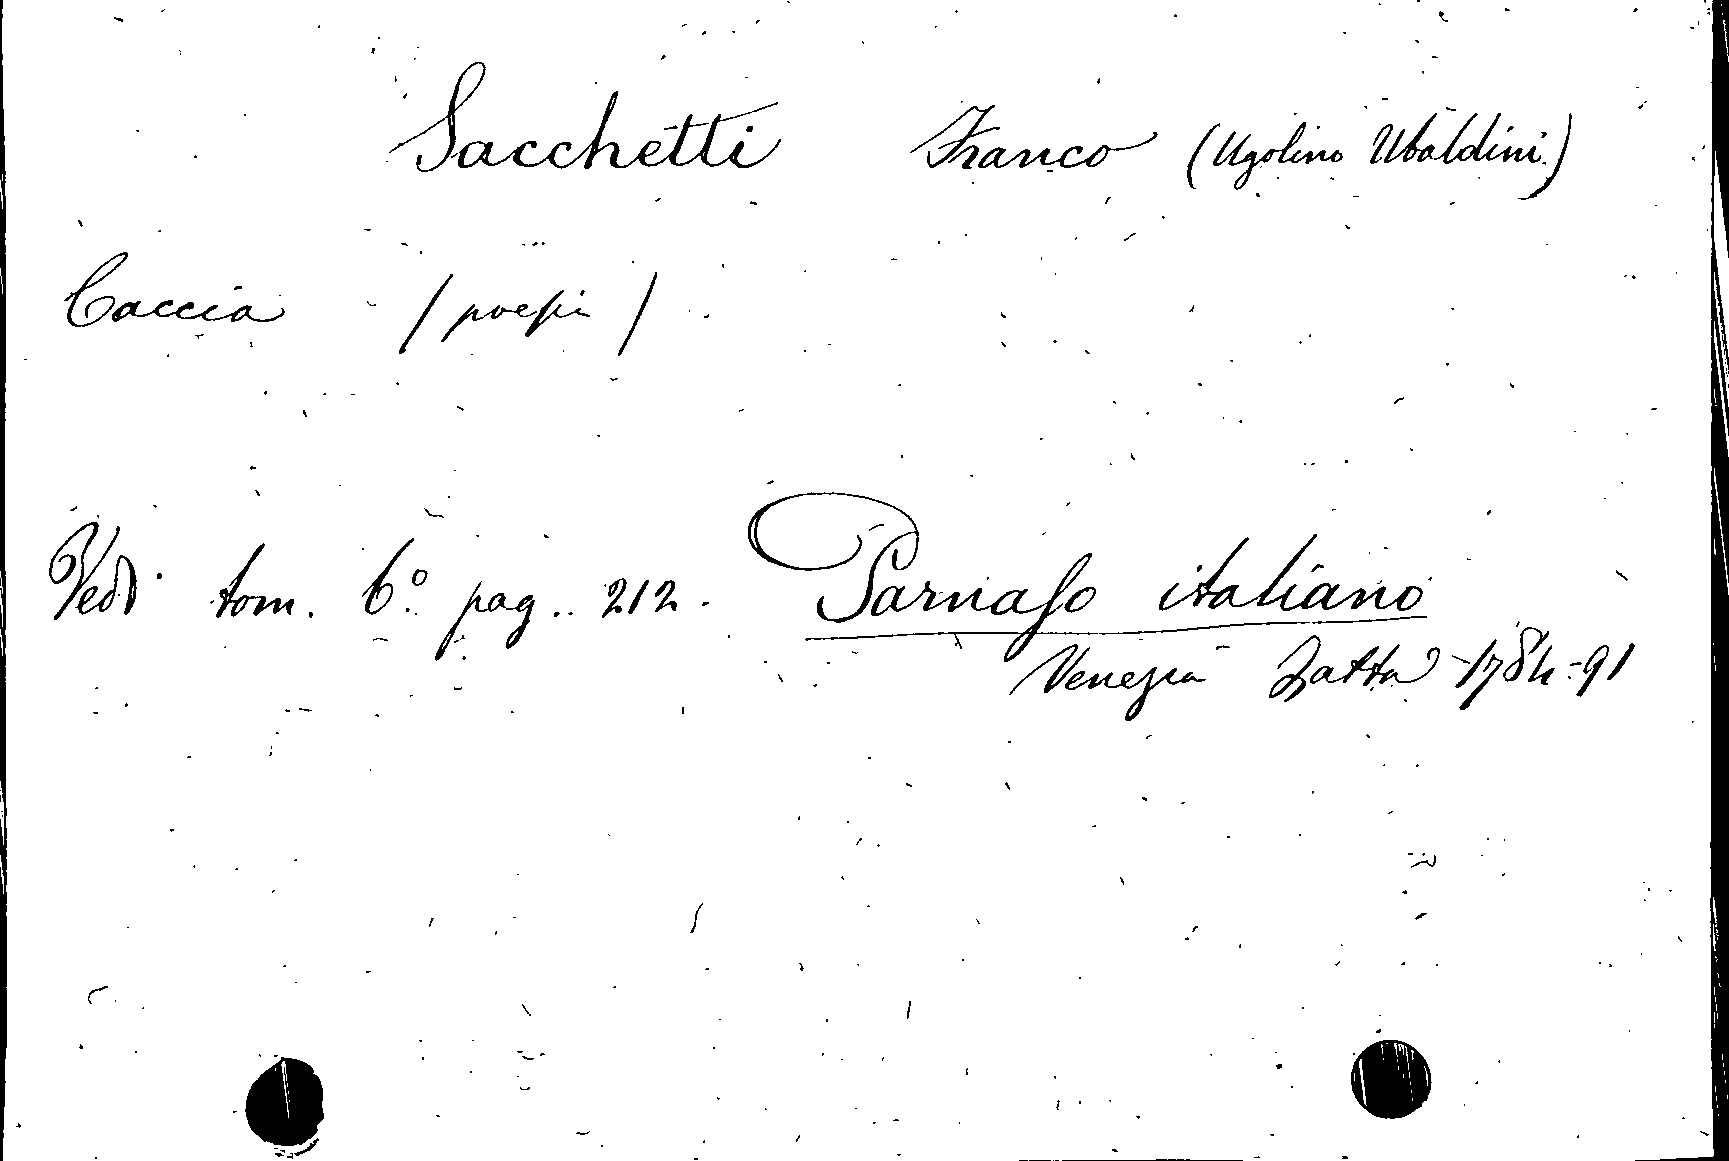 Sacchetti Franco (Ugolino Ubaldini)
Caccia / poesia /
Vedi tom. 6.º pag. 212. Parnaso italiano
Venezia Zatta - 1784-91